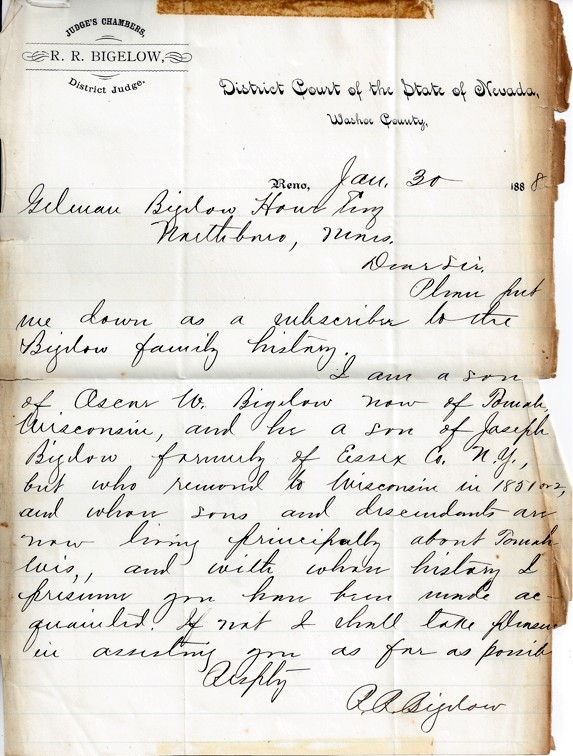 JUDGE'S CHAMBERS,
R. R. BIGELOW,
District Judge.
District Court of the State of Nevada,
Washoe County,
Reno, Jan. 30 1888
Gilman Bigelow Howe Esq
Northboro, Mass.
Dear Sir,
Please put
me down as a subscriber to the
Bigelow family history.
I am a son
of Oscar W. Bigelow now of Tomah,
Wisconsin, and he a son of Joseph
Bigelow formerly of Essex Co. N.Y.,
but who removed to Wisconsin in 1851 or 2,
and whose sons and descendants are
now living principally about Tomah
Wis., and with whose history I
presume you have been made ac-
quainted. If not I shall take pleasure
in assisting you as far as possible
Respty
R. R. Bigelow